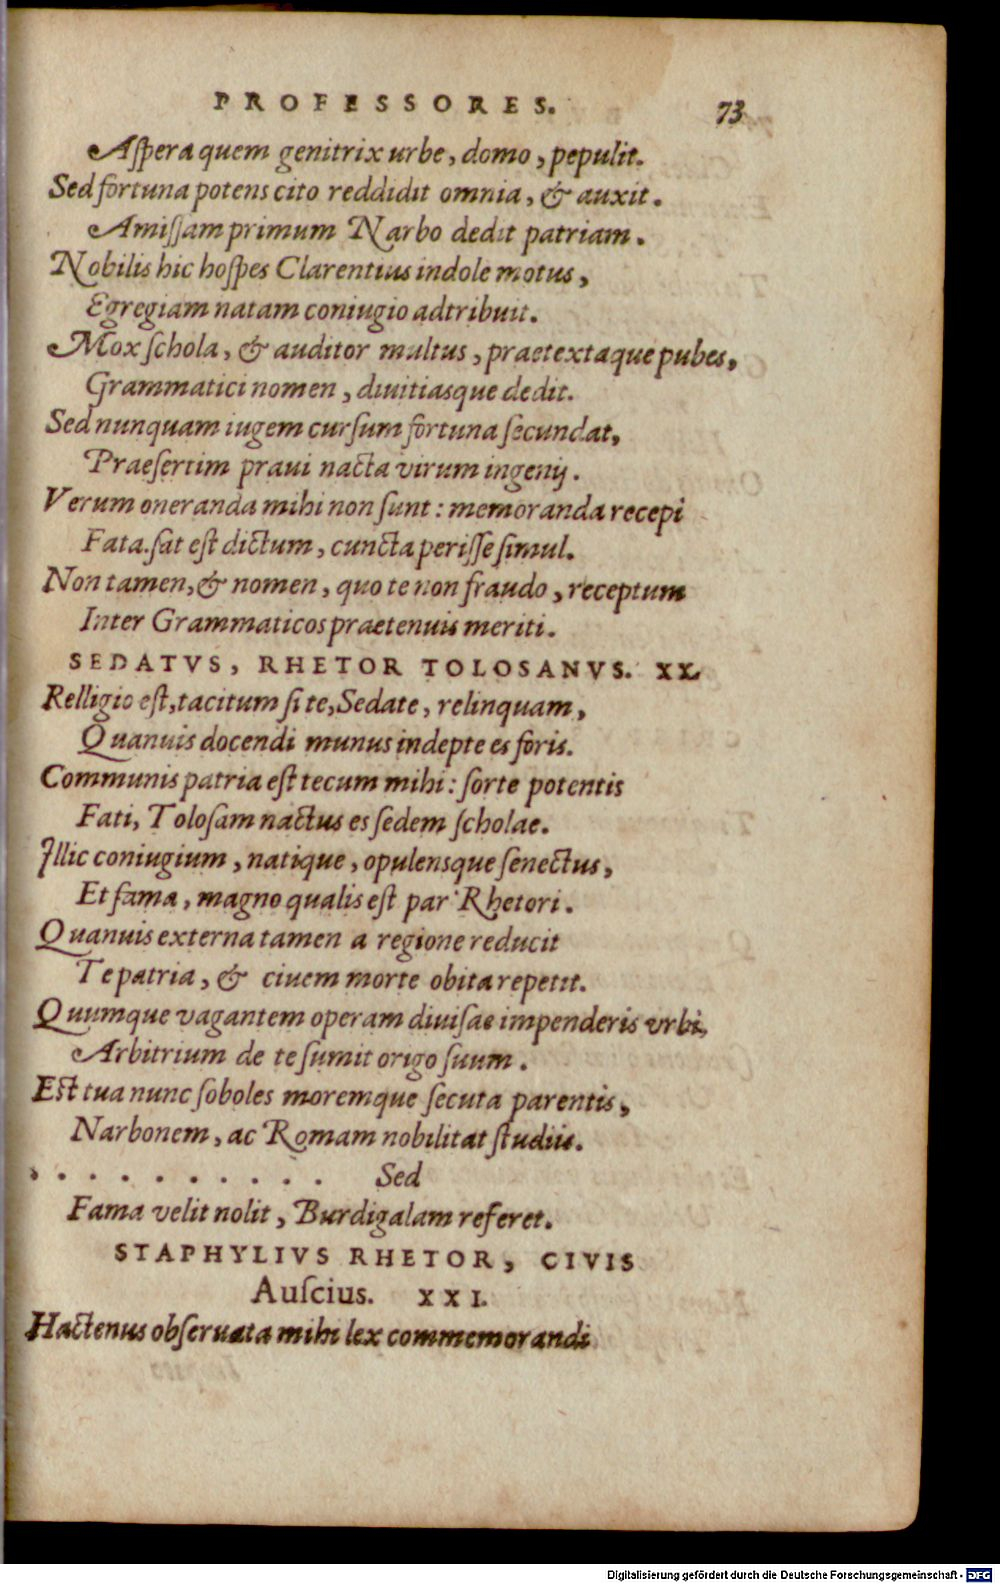 PROFESSORES. 73
Aſpera quem genitrix urbe, domo, pepulit.
Sed fortuna potens cito reddidit omnia, & auxit.
Amiſſam primum Narbo dedit patriam.
Nobilis hic hoſpes Clarentius indole motus,
Egregiam natam coniugio adtribuit.
Mox ſchola, & auditor multus, praetextaque pubes,
Grammatici nomen, diuitiasque dedit.
Sed nunquam iugem curſum fortuna ſecundat,
Praeſertim praui nacta virum ingenij.
Verum oneranda mihi non ſunt: memoranda recepi
Fata. ſat eſt dictum, cuncta periſſe ſimul.
Non tamen, & nomen, quo te non fraudo, receptum
Inter Grammaticos praetenuis meriti.
SEDATVS, RHETOR TOLOSANVS. XX.
Relligio eſt, tacitum ſi te, Sedate, relinquam,
Quanuis docendi munus indepte es foris.
Communis patria eſt tecum mihi: ſorte potentis
Fati, Toloſam nactus es ſedem ſcholae.
Illic coniugium, natique, opulensque ſenectus,
Et fama, magno qualis eſt par Rhetori.
Quanuis externa tamen a regione reducit
Te patria, & ciuem morte obita repetit.
Quumque vagantem operam diuiſae impenderis vrbi,
Arbitrium de te ſumit origo ſuum.
Eſt tua nunc ſoboles moremque ſecuta parentis,
Narbonem, ac Romam nobilitat ſtudiis.
. . . . . . . . . . . Sed
Fama velit nolit, Burdigalam referet.
STAPHYLIVS RHETOR, CIVIS
Auſcius. XXI.
Hactenus obſeruata mihi lex commemorandi
Digitalisierung gefördert durch die Deutsche Forschungsgemeinschaft - DFG